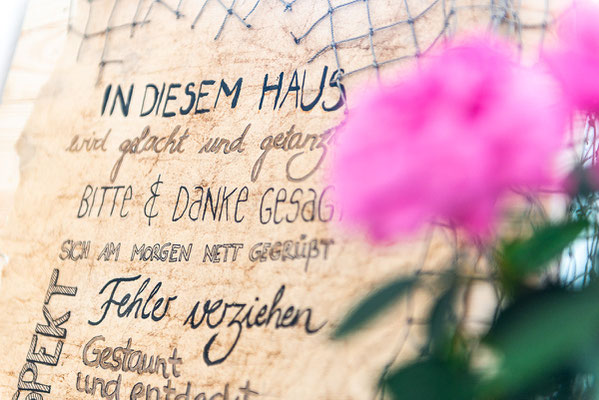 IN DIESEM HAUS
wird gelacht und getanz
BITTE & DANKE GESAGT
SICH AM MORGEN NETT GEGRÜßT
Fehler verziehen
Gestaunt
und entdeckt
SPEKT